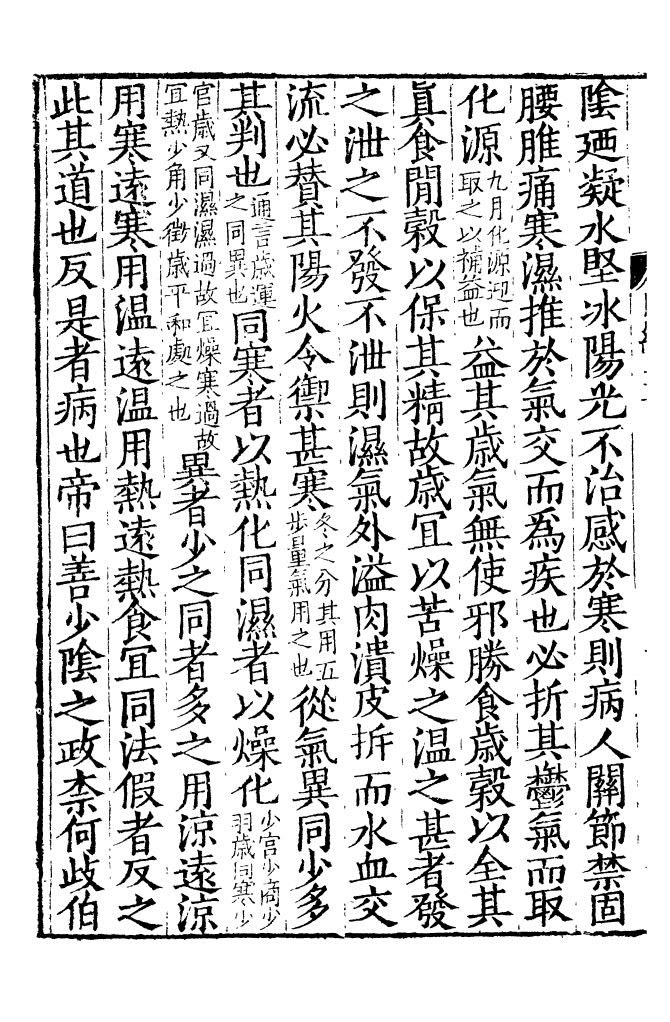 陰廼凝水堅冰陽光不治感於寒則病人關節禁固
腰脽痛寒濕推於氣交而爲疾也必折其鬱氣而取
化源九月化源迎而取之以補益也益其歳氣無使邪勝食歳穀以全其
眞食閒穀以保其精故歳冝以苦燥之温之甚者發
之泄之不發不泄則濕氣外溢肉潰皮拆而水血交
流必賛其陽火令御甚寒冬之分其用五步量氣用之也從氣異同少多
其判也通言歳運之同異也同寒者以熱化同濕者以燥化少宫少商少羽歳同寒少
宫歳又同濕濕過故冝燥寒過故冝熱少角少徵歳平和處之也異者少之同者多之用涼遠涼
用寒遠寒用温遠温用熱遠熱食冝同法假者反之
此其道也反是者病也帝曰善少陰之政柰何歧伯